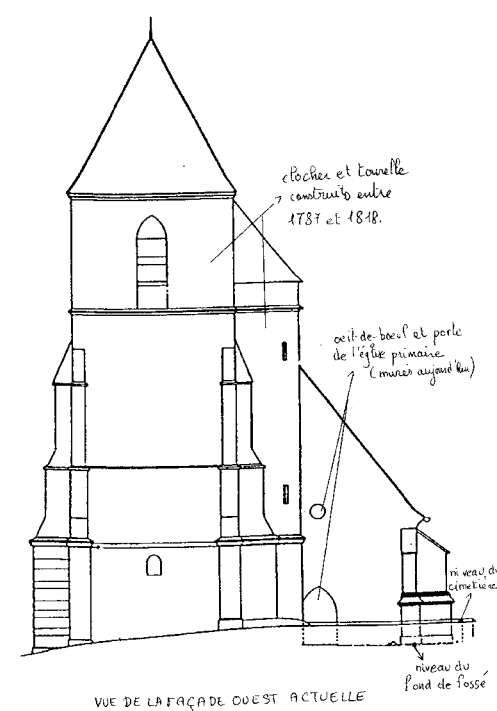 clocher et tourelle
construits entre
1787 et 1818.
oeil-de-boeuf et porte
de l'église primaire
(murés aujourd'hui)
niveau du
cimetière
niveau du
fond de fossé
VUE DE LA FAÇADE OUEST ACTUELLE